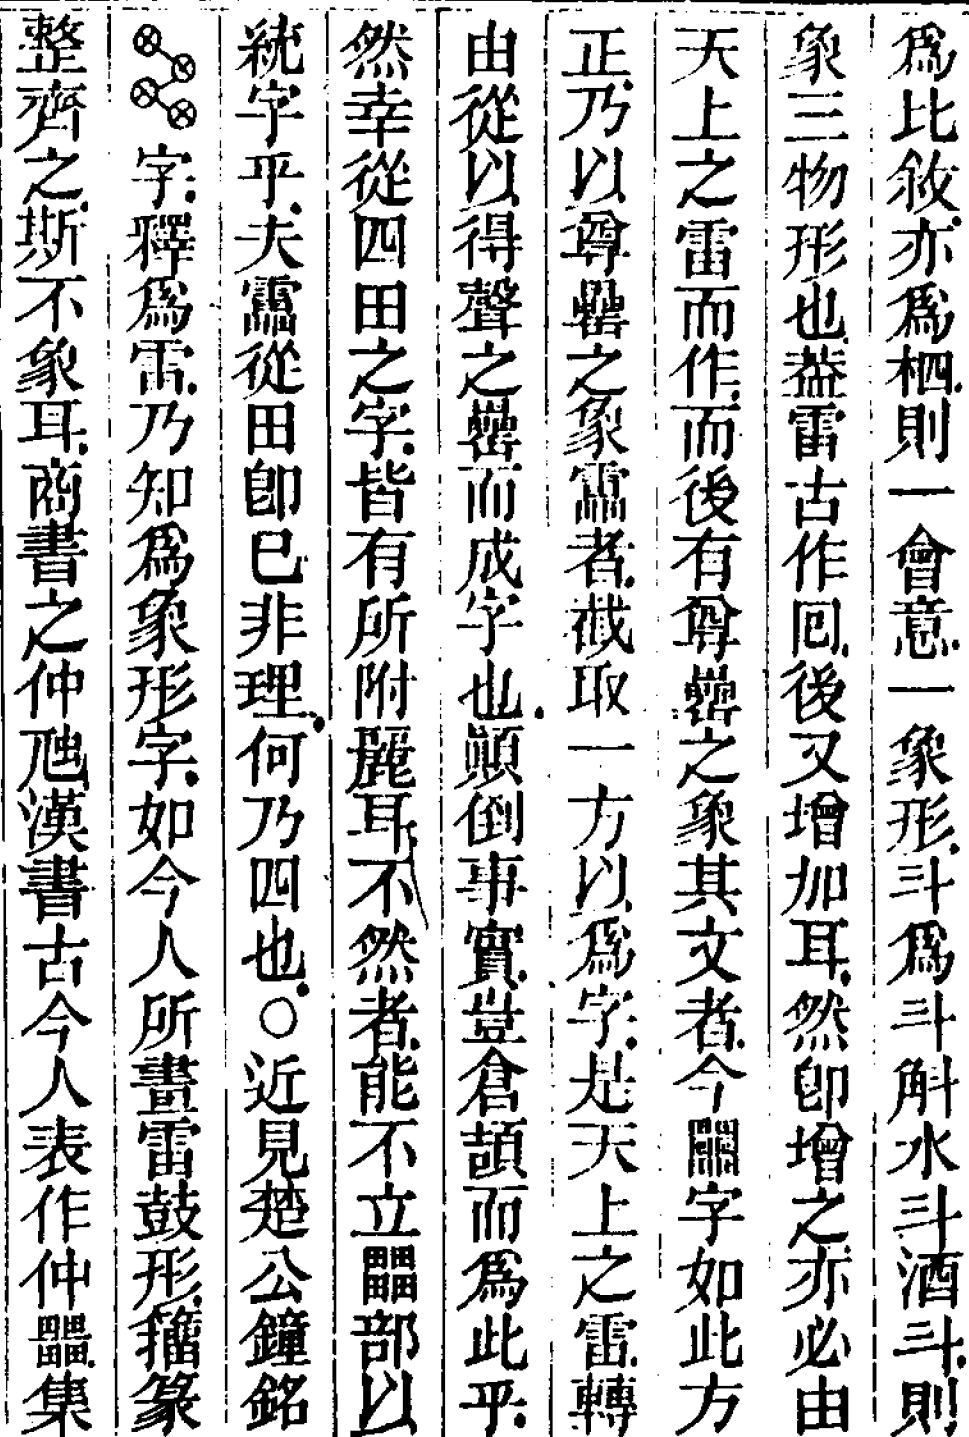 爲比敘亦爲栖則一會意一象形斗爲斗斛水斗酒斗則
象三物形也葢雷古作回後又增加耳然卽增之亦必由
天上之雷而作而後有尊罍之象其文者今字如此方
正乃以尊罍之象靁者截取一方以爲字是天上之雷轉
由從以得聲之罍而成字也顚倒事實豈倉頡而爲此乎
然幸從四田之字皆有所附麗耳不然者能不立部以
統字乎夫靁從田卽已非理何乃四也○近見楚公鐘銘
字釋爲雷乃知爲象形字如今人所畫雷鼓形籒篆
整齊之斯不象耳商書之仲虺漢書古今人表作仲集